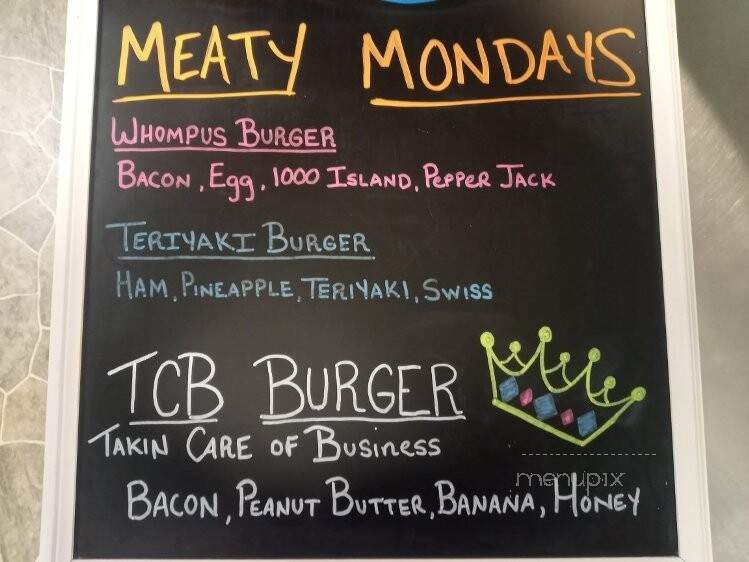 MEATY MONDAYS
WHOMPUS BURGER
BACON, Egg, 1000 ISLAND, PEPPER JACK
TERIYAKI BURGER
HAM, PINEAPPLE, TERIYAKI, SWISS
TCB BURGER
TAKIN CARE OF BUSINESS
menupix
BACON, PEANUT BUTTER, BANANA, HONEY